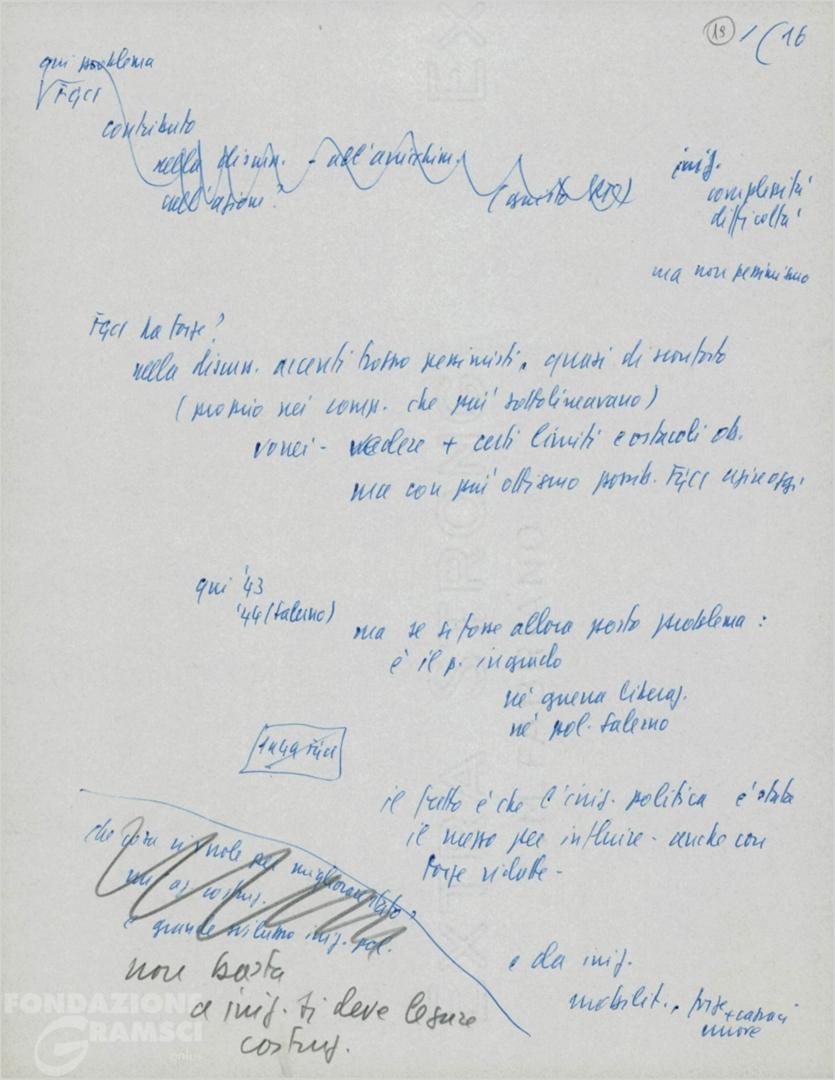 19 / (16
qui problema
FGCI
contributo
nella discuss. - all'arricchim.
nell'azione?
(questo
iniz.
complessità
difficoltà
ma non pessimismo
FGCI ha forze?
nella discuss. accenti troppo pessimisti, quasi di sconforto
(proprio nei comp. che più sottolineavano)
vorrei - vedere + certi limiti e ostacoli ob.
ma con più ottimismo possib. FGCI agire oggi
qui '43
'44 (Salerno)
ma se si fosse allora posto problema:
è il p. in grado
né guerra liberaz.
né pol. Salerno
il fatto è che l'iniz. politica è stata
il mezzo per influire - anche con
forze ridotte -
che cosa si vuole per migliorare stato
un as costruz.
è grande sviluppo iniz. pol.
non basta
a iniz. si deve legare
costruz.
e da iniz.
mobilit., forze
+ capaci
nuove
FONDAZIONE
GRAMSCI
onlus
EXTRA STRONG